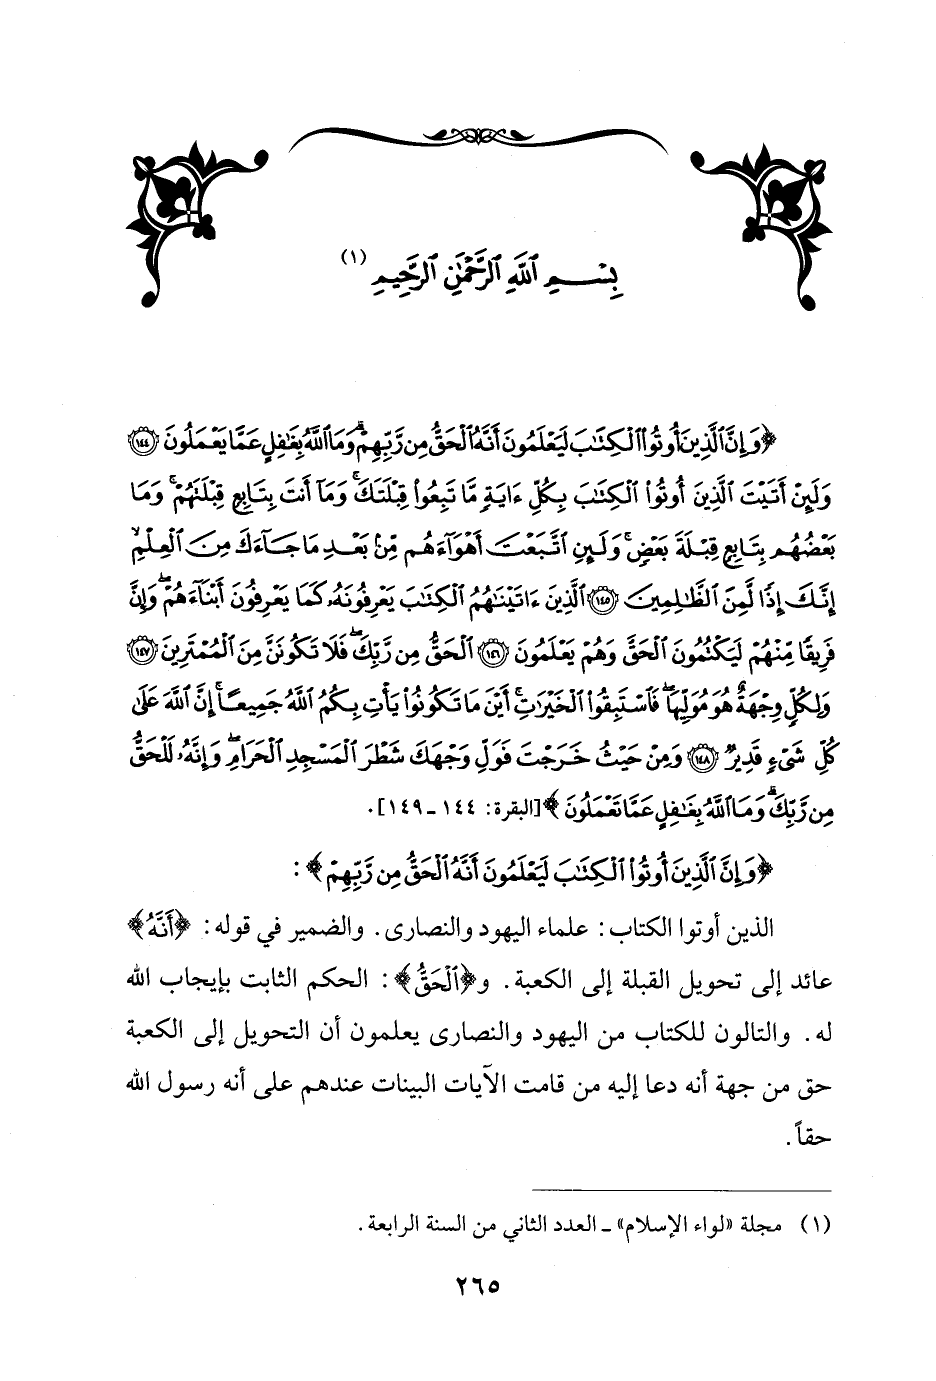 بِسْمِ ٱللَّهِ ٱلرَّحْمَٰنِ ٱلرَّحِيمِ (١)
﴿وَإِنَّ ٱلَّذِينَ أُوتُوا۟ ٱلْكِتَٰبَ لَيَعْلَمُونَ أَنَّهُ ٱلْحَقُّ مِن رَّبِّهِمْ ۗ وَمَا ٱللَّهُ بِغَٰفِلٍ عَمَّا يَعْمَلُونَ ١٤٤
وَلَئِنْ أَتَيْتَ ٱلَّذِينَ أُوتُوا۟ ٱلْكِتَٰبَ بِكُلِّ ءَايَةٍ مَّا تَبِعُوا۟ قِبْلَتَكَ ۚ وَمَآ أَنتَ بِتَابِعٍ قِبْلَتَهُمْ ۚ وَمَا
بَعْضُهُم بِتَابِعٍ قِبْلَةَ بَعْضٍ ۚ وَلَئِنِ ٱتَّبَعْتَ أَهْوَآءَهُم مِّنۢ بَعْدِ مَا جَآءَكَ مِنَ ٱلْعِلْمِ ۙ
إِنَّكَ إِذًا لَّمِنَ ٱلظَّٰلِمِينَ ١٤٥ ٱلَّذِينَ ءَاتَيْنَٰهُمُ ٱلْكِتَٰبَ يَعْرِفُونَهُۥ كَمَا يَعْرِفُونَ أَبْنَآءَهُمْ ۖ وَإِنَّ
فَرِيقًا مِّنْهُمْ لَيَكْتُمُونَ ٱلْحَقَّ وَهُمْ يَعْلَمُونَ ١٤٦ ٱلْحَقُّ مِن رَّبِّكَ ۖ فَلَا تَكُونَنَّ مِنَ ٱلْمُمْتَرِينَ ١٤٧
وَلِكُلٍّ وِجْهَةٌ هُوَ مُوَلِّيهَا ۖ فَٱسْتَبِقُوا۟ ٱلْخَيْرَٰتِ ۚ أَيْنَ مَا تَكُونُوا۟ يَأْتِ بِكُمُ ٱللَّهُ جَمِيعًا ۚ إِنَّ ٱللَّهَ عَلَىٰ
كُلِّ شَىْءٍ قَدِيرٌ ١٤٨ وَمِنْ حَيْثُ خَرَجْتَ فَوَلِّ وَجْهَكَ شَطْرَ ٱلْمَسْجِدِ ٱلْحَرَامِ ۖ وَإِنَّهُۥ لَلْحَقُّ
مِن رَّبِّكَ ۗ وَمَا ٱللَّهُ بِغَٰفِلٍ عَمَّا تَعْمَلُونَ﴾ [البقرة: ١٤٤ - ١٤٩].
﴿وَإِنَّ ٱلَّذِينَ أُوتُوا۟ ٱلْكِتَٰبَ لَيَعْلَمُونَ أَنَّهُ ٱلْحَقُّ مِن رَّبِّهِمْ﴾:
الذين أوتوا الكتاب: علماء اليهود والنصارى. والضمير في قوله: ﴿أَنَّهُ﴾
عائد إلى تحويل القبلة إلى الكعبة. و﴿ٱلْحَقُّ﴾: الحكم الثابت بإيجاب الله
له. والتالون للكتاب من اليهود والنصارى يعلمون أن التحويل إلى الكعبة
حق من جهة أنه دعا إليه من قامت الآيات البينات عندهم على أنه رسول الله
حقاً.
(١) مجلة «لواء الإسلام» - العدد الثاني من السنة الرابعة.
٢٦٥